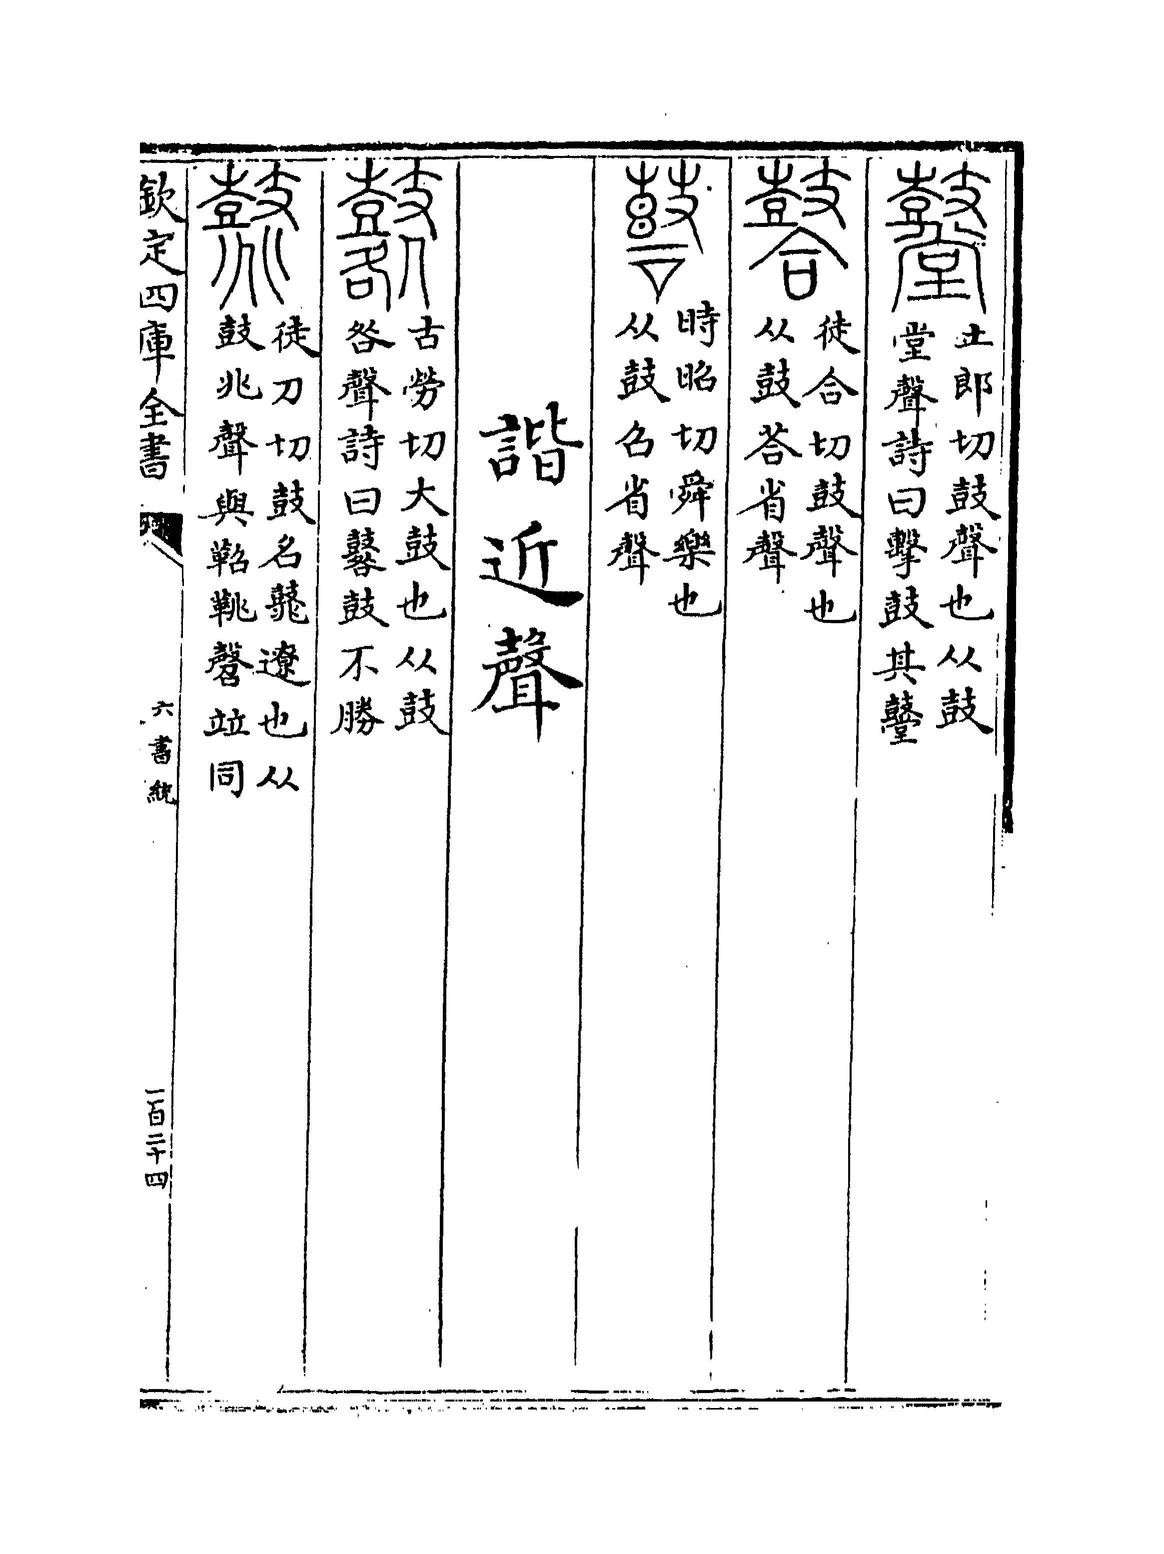 鼞
土郎切鼓聲也从鼓
堂聲詩曰擊鼓其鼞
徒合切鼓聲也
从鼓荅省聲
時昭切舜樂也
从鼓召省聲
諧近聲
鼛
古勞切大鼓也从鼓
咎聲詩曰鼛鼓不勝
鼗
徒刀切鼓名鼗遼也从
鼓兆聲與鞀鞉磬竝同
欽定四庫全書
六書統
一百二十四